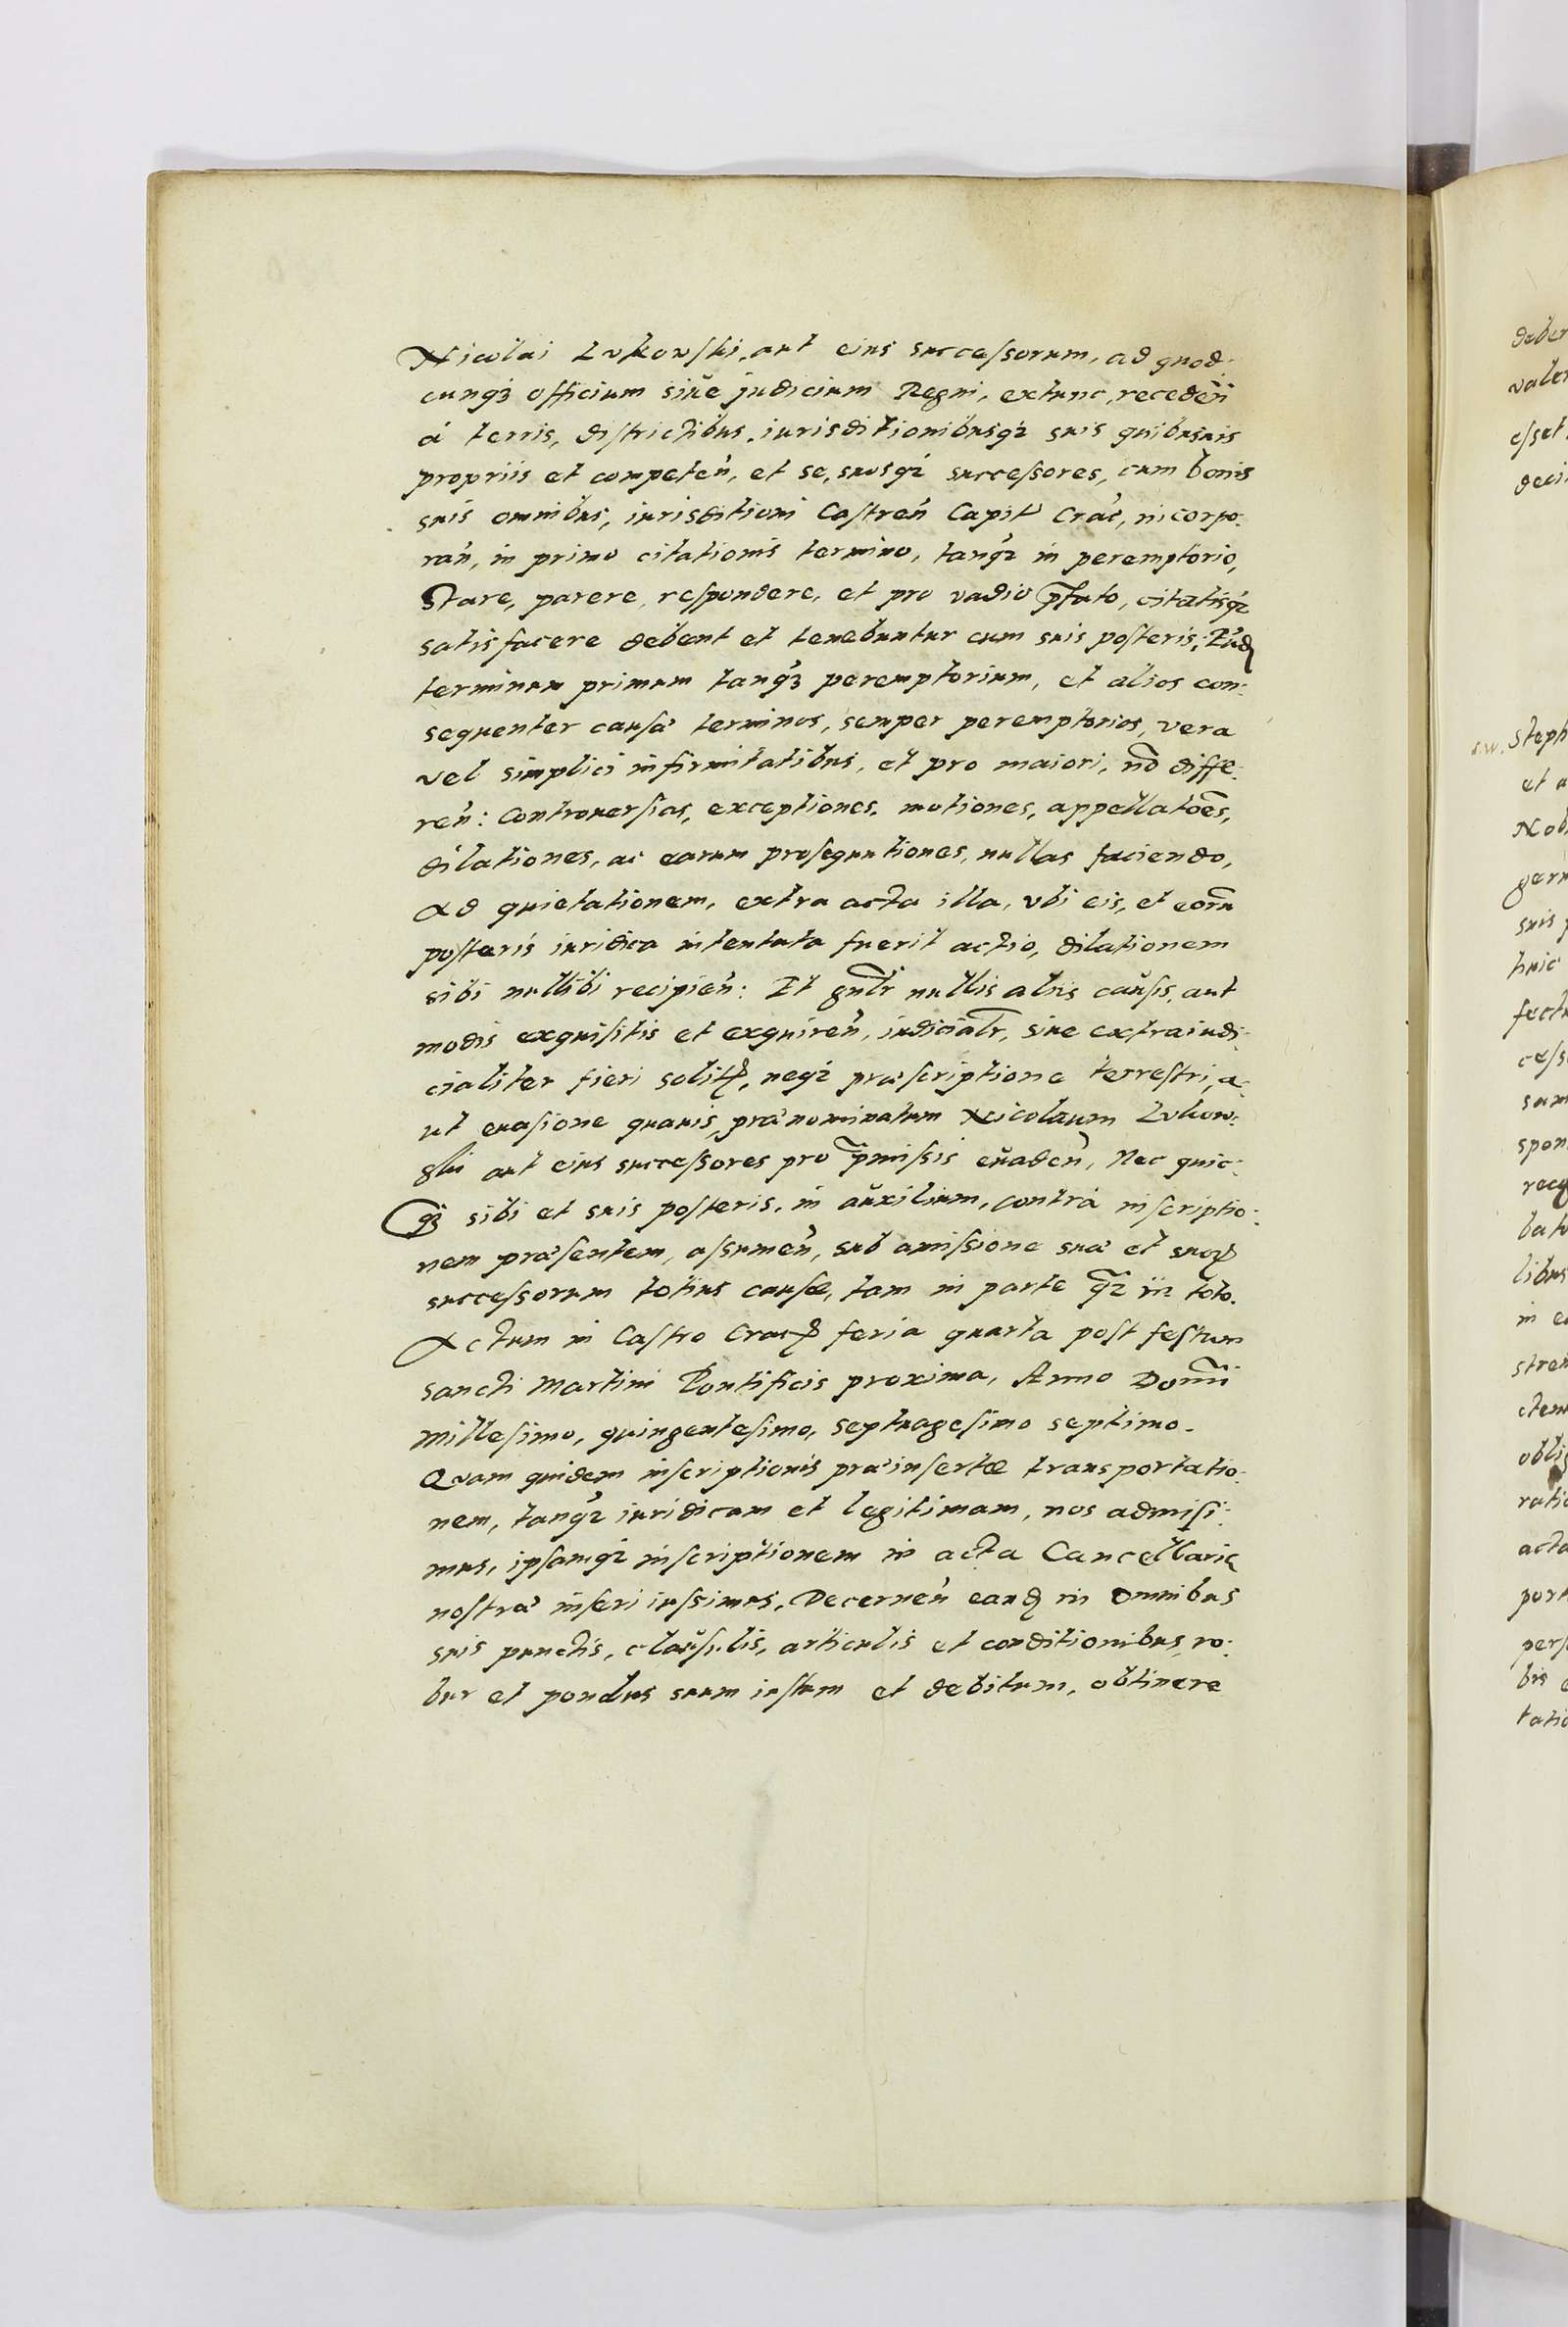 Nicolai Lukowski, aut eius successorum, ad quod-
cunq₃ officium siue judicium Regni, extunc, receden̄
á terris, districtibus, iurisditionibusq₃ suis quibusuis
propriis et competen̄, et se, suosq₃ successores, cum bonis
suis omnibus, iurisditioni Castren̄ Capit Crac̄, incorpo:
ran̄, in primo citationis termino, tanq₃ in peremptorio,
Stare, parere, respondere, et pro vadio p̄fato, citatisq₃
satisfacere debent et tenebuntur cum suis posteris:
terminum primum tanq₃ peremptorium, et alios con:
sequenter causæ terminos, semper peremptorios, vera
vel simplici infirmitatibus, et pro maiori, nō diffe:
ren̄: Controuersias, exceptiones, motiones, appellatōes,
dilationes, ac earum prosequutiones, nullas faciendo,
Ad quietationem, extra acta illa, vbi eis, et eorū
posteris iuridica intentata fuerit actio, dilationem
sibi nullibi recipien̄: Et gn̄lr nullis aliis causis, aut
modis exquisitis et exquiren̄, iudicialr̄, siue extraiudi:
cialiter fieri solitꝭ, neq₃ præscriptione terrestri, a:
ut euasione quauis, prænominatum Nicolaum Lukow:
ski aut eius successores pro p̄missis euaden̄, Nec quic:
q₃ sibi et suis posteris, in auxilium, contrà inscriptio:
nem præsentem, assumen̄, sub amissione suæ et suoꝝ
successorum totius causæ, tam in parte q₃ in toto.
Actum in Castro Cracꝭ feria quarta post festum
sancti Martini Pontificis proxima, Anno Domi̅
Millesimo, quingentesimo, septuagesimo septimo.
Quam quidem inscriptionis præinsertæ transportatio:
nem, tanq₃ iuridicam et legitimam, nos admisi:
mus, ipsamq₃ inscriptionem in acta Cancellariæ
nostræ inseri iussimus, Decernen̄ eandꝭ in omnibus
suis punctis, clausulis, articulis et conditionibus, ro:
bur et pondus suum iustum et debitum, obtinere